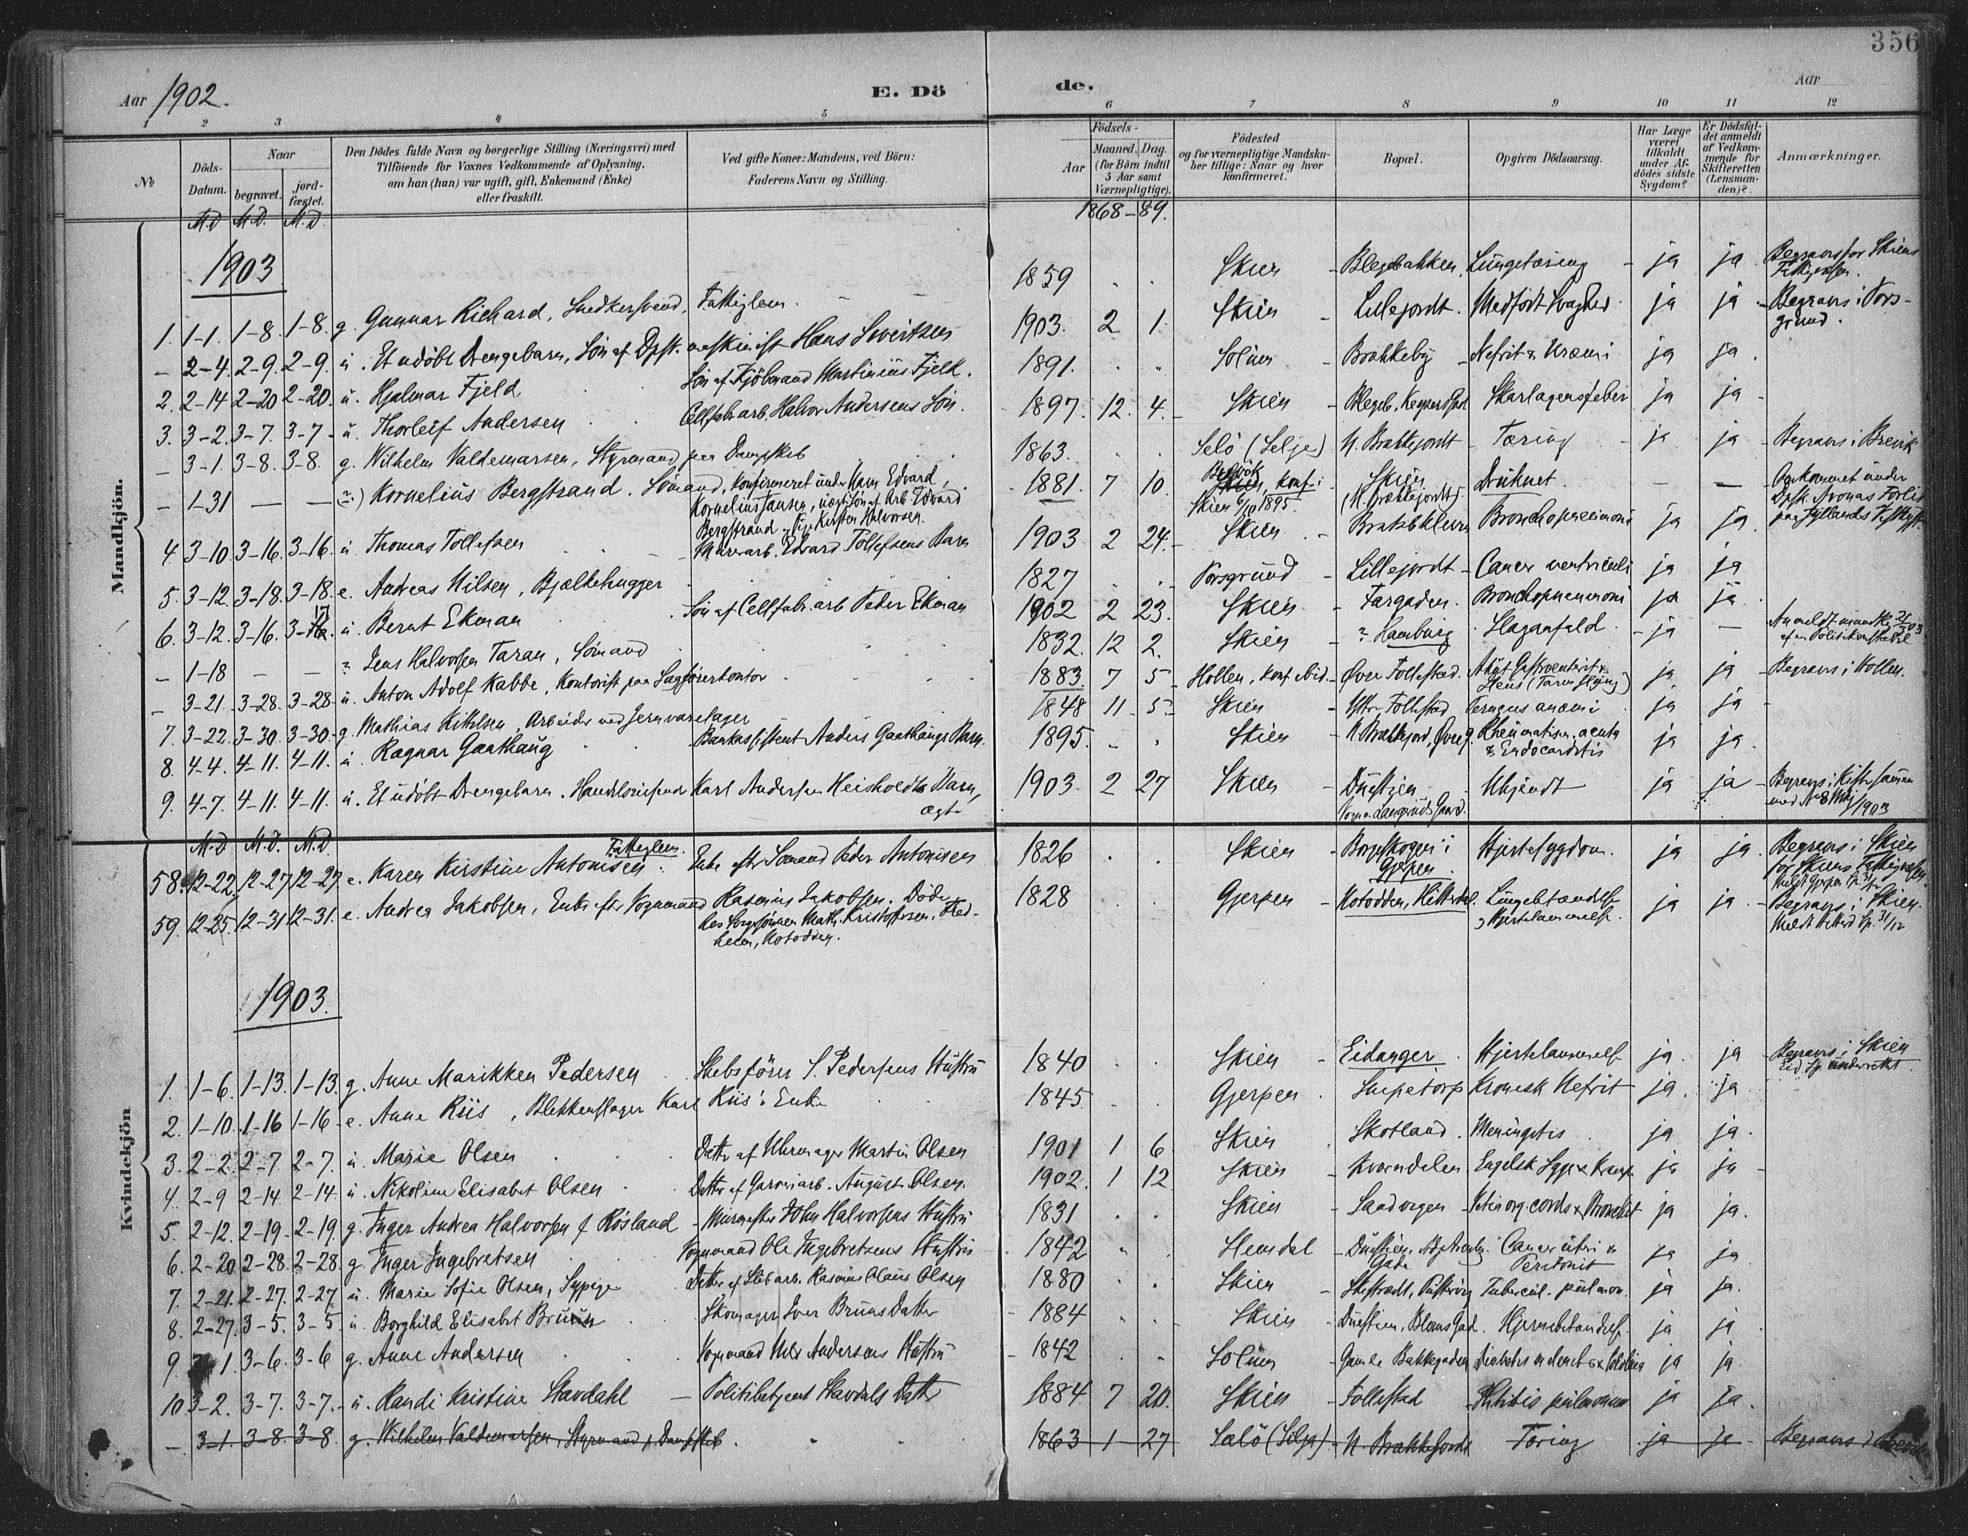 356
Aar 1902. E. Dö de. Aar
1 2 3 4 5 6 7 8 9 10 11 12
No
Döds-Datum.
Naar
begravet.
jordfæstet.
Den Dödes fulde Navn og borgerlige Stilling (Næringsvei) med
Tilföiende for Voxnes Vedkommende af Oplysning,
om han (hun) var ugift, gift, Enkemand (Enke)
eller fraskilt.
Ved gifte Koner: Mandens, ved Börn:
Faderens Navn og Stilling.
Födsels-
Aar
Maaned. Dag.
(for Börn indtil
5 Aar samt
Værnepligtige).
Födested
og for værnepligtige Mandska-
ber tillige: Naar og hvor
konfirmeret.
Bopæl.
Opgiven Dödsaarsag.
Har Læge
været
tilkaldt
under Af-
dödes sidste
Sygdom?
Er Dödsfal-
det anmeldt
af Vedkom-
mende for
Skifteretten
(Lensman-
den)?
Anmærkninger.
M.D M.D. M.D. 1868-89.
Mandkjön.
1903
1. 1-1. 1-8 1-8 g. Gunnar Richard, Snedkersvend, Fattiglem. 1859 Skien Blegebakken, Lungetæring ja ja Begraves for Skiens
- 2-4. 2-9. 2-9. u. Et udöbt Drengebarn, Sön af Dpsk. maskinist Hans Sivertsen 1903. 2 1. Skien Lillejordt. Medfödt Svaghed. ja ja Begraves i Pors-
grund.
2. 2-14 2-20 2-20. u. Hjalmar Fjeld Sön af Kjöbmand Martinius Fjeld. 1891. Solum Brække by Nefrit & Uræmi ja ja.
3. 3-2. 3-7. 3-7 u. Thorleif Andersen Cellfabr.arb. Halvor Andersens Sön. 1897. 12. 4. Skien Skarlagensfeber ja ja
- 3-1. 3-8. 3-8. g. Wilhelm Valdemarsen, Styrmand paa Dampskib 1863. Selö (Selje) N. Brækkejordt Tæring ja ja Begraves i Brevik
- 1-31 - - Kornelius Bergstrand. Sömand, konfirmeret under Navn Edvard
Kornelius Jansen, Sön af Arb. Edvard
Bergstrand Kirsten Halvorsen. 1881. 7 10. konf. i
Skien 1895. Skien (N. Brækkejordt). Druknet. - - Omkommet under
4. 3-10. 3-16. 3-16. u. Thomas Tollefsen Murearb. Edvard Tollefsens Barn 1903 2 24. Skien Bratsbkleven Bronchopneumoni ja ja.
5. 3-12. 3-18. 3-18. e. Andreas Nilsen, Bjælkehugger 1827 Porsgrund Lillejordt Cancer ventriculi ja ja
6. 3-12. 3-16. 3-17. u. Bernt Ekman Sön af Cellfabr.arb. Peder Ekman 1902 2 23. Skien Fargaden. Bronchopneumoni ja ja
- 1-18 - - ? Jens Halvorsen Taran, Sömand 1832. 12 2. Skien ? Hamburg Slaganfald. ja -
- 3-21. 3-28. 3-28 u. Anton Adolf Kabbe, Kontorist paa Sagförerkontor 1883. 7 5 Hollen, konf. ibid. Övre Follestad. Akut Gastroenterit & Ileus (Tarmslyng) ja ja Begraves i Hollen.
7. 3-22. 3-30. 3-30 g. Mathias Kittilsen, Arbeider ved Jernvarelager 1848 11 5 Skien Ytre Follestad Perniciös anæmi ja ja
8. 4-4. 4-11. 4-11. u. Ragnar Gaathaug Bankassistent Anders Gaathaugs Barn. 1895. Skien Rheumatism. acuta & Endocarditis ja ja.
9. 4-7. 4-11. 4-11. u. Et udöbt Drengebarn. Handelsreisende Karl Andersen Heisholdts Barn,
ægt. 1903 2 27 Skien Duestien Ukjendt ja ja Begraves i Kiste sammen
Kvindekjön
M.D M.D. M.D
58. 12-22. 12-27 12-27. e. Karen Kirstine Antonisen. Fattiglem. Enke eftr Sömand Peder Antonisen 1826 Skien Borgeskogen i
Gjerpen Hjertesygdom. ja ja. Begraves i Skien
for Skiens Fattigvæsen.
59. 12-25. 12-31 12-31. e. Andrea Jakobsen, Enke eftr Vognmand Rasmus Jakobsen. Död
hos Svigersönnen Math. Kristoffersen,
Notodden. 1828 Gjerpen Notodden, Hitterdal. Lungebetændelse
& Hjertelammelse. ja ja. Begraves i Skien.
1903.
1. 1-6. 1-13. 1-13. g. Anne Marikken Pedersen Skibsförer S. Pedersens Hustru 1840 Skien Eidanger Hjertelammelse ja. ja Begraves i Skien
2. 1-10. 1-16 1-16 e. Anne Riis, Blikkenslager Karl Riis's Enke 1845. Gjerpen Snipetorp Kronisk Nefrit ja ja
3. 2-2. 2-7. 2-7. u. Marie Olsen Datter af Uhrmager Martin Olsen 1901 1 6 Skien Skotland. Meningitis ja ja.
4. 2-9 2-14 2-14. u. Nikoline Elisabet Olsen Datter af Garveriarb. August Olsen. 1902. 1 12. Skien Kverndalen Engelsk Syge & Kramp ja ja
5. 2-12. 2-19. 2-19. g. Inger Andrea Halvorsen f. Rösland Murmester John Halvorsens Hustru 1831 Skien Laadvegen Vitis org. cordis & Bronchit ja ja.
6. 2-20 2-28. 2-28. g. Inger Ingebretsen Vognmand Ole Ingebretsens Hustru 1842 Slemdal Duestien. Cancer uteri & Peritonit ja ja
7. 2-21. 2-27. 2-27 u. Marie Sofie Olsen, Sypige Datter af Skibsarb. Rasmus Olaus Olsen 1880 Skien Tubercul. pulmon. ja ja.
8. 2-27. 3-5. 3-5 u. Borghild Elisabet Bruun Skomager Iver Bruns Datter 1884 Skien Duestien, Bloms Gad. Hjernebetændelse. ja ja
9 1 3-6. 3-6 g. Anne Andersen Vognmand Nils Andersens Hustru 1842 Solum Gamle Bakkegaden Diabetes ja ja.
10 3-2. 3-7. 3-7. u. Randi Kristine Stavdahl Politibetjent Stavdals Datter 1884. 7 20. Skien Follestad Phthisis pulmonum ja ja.
- 3-1. 3-8. 3-8. g. Wilhelm Valdemarsen, Styrmand p. Dampskib. 1863 1 27 Selö (Selje) N. Brækkejordt Tæring ja ja Begraves i Brevik